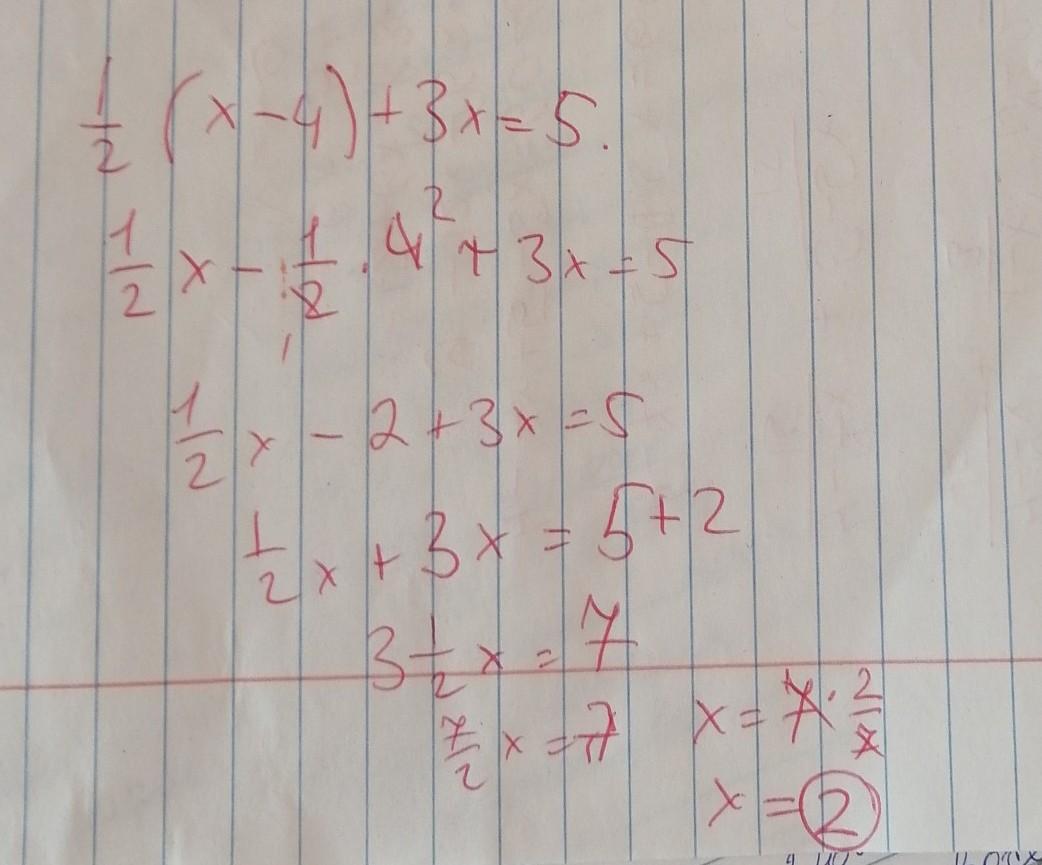 1/2 (x-4) + 3x = 5.
1/2 x - 1/2 . 4 2 + 3x = 5
1
1/2 x - 2 + 3x = 5
1/2 x + 3x = 5 + 2
3 1/2 x = 7
7/2 x = 7
x = 7 . 2/7
x = 2